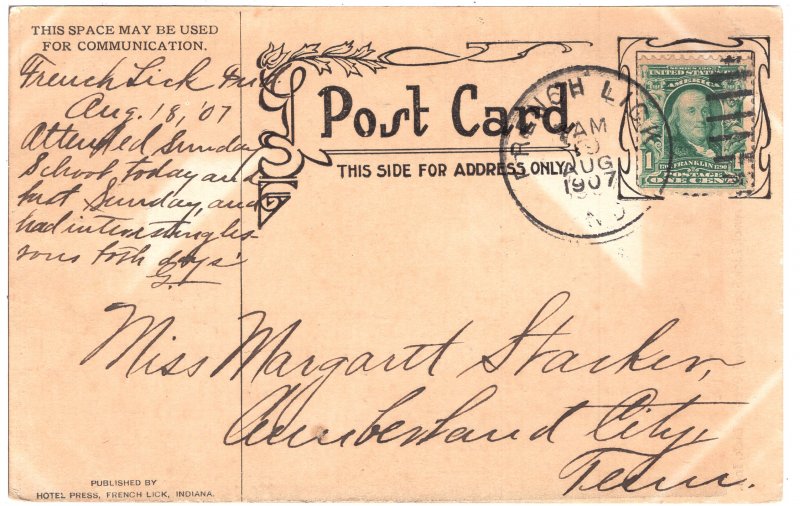 THIS SPACE MAY BE USED
FOR COMMUNICATION.
French Lick Ind
Aug. 18, '07
Attended Sunday
School today and
last Sunday, and
had interesting les
sons both days
G.
Post Card
THIS SIDE FOR ADDRESS ONLY
FRENCH LICK
AM
AUG
1907
IND
UNITED STATES
AMERICA
1 FRANKLIN 1
POSTAGE
ONE CENT
Miss Margaret Stacker,
Cumberland City,
Tenn.
PUBLISHED BY
HOTEL PRESS, FRENCH LICK, INDIANA.